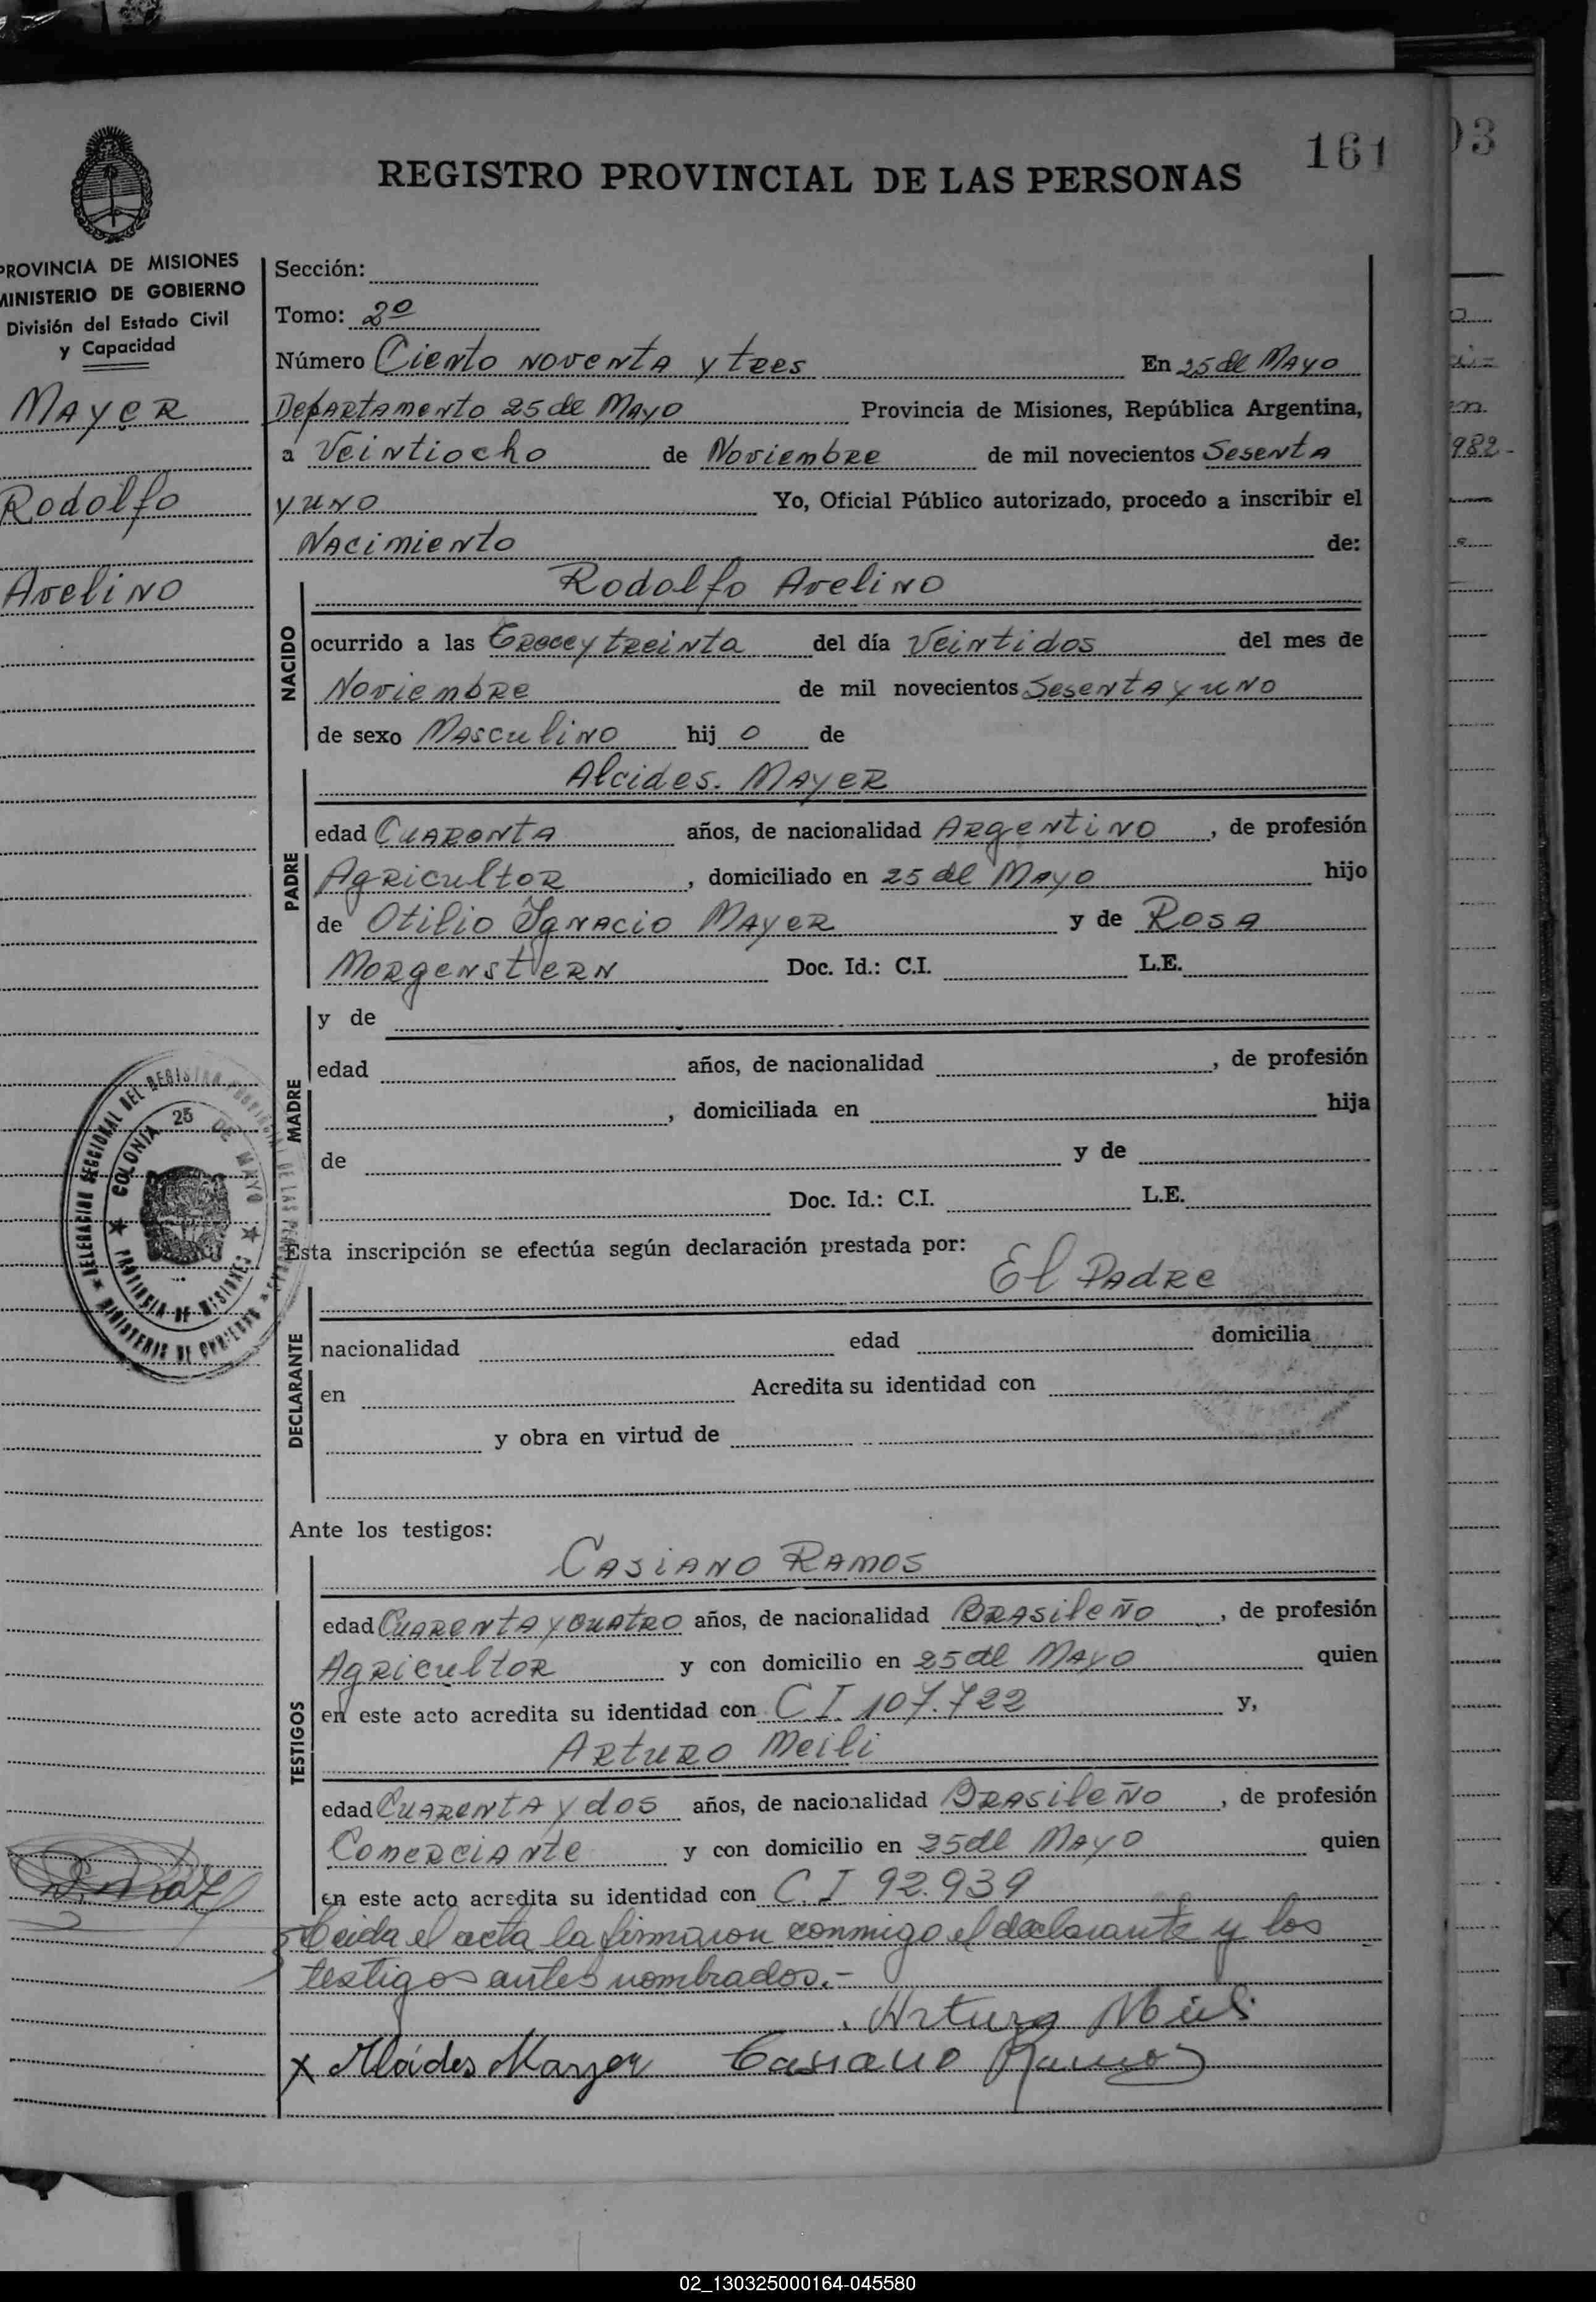 161
93
REGISTRO PROVINCIAL DE LAS PERSONAS
PROVINCIA DE MISIONES
MINISTERIO DE GOBIERNO
División del Estado Civil
y Capacidad
Mayer
Rodolfo
Avelino
Sección:
Tomo: 2º
Número Ciento noventa y tres En 25 de Mayo
Departamento 25 de Mayo Provincia de Misiones, República Argentina,
a Veintiocho de Noviembre de mil novecientos Sesenta
y uno Yo, Oficial Público autorizado, procedo a inscribir el
Nacimiento de:
Rodolfo Avelino
NACIDO
ocurrido a las Trece y treinta del día Veintidos del mes de
Noviembre de mil novecientos Sesenta y uno
de sexo Masculino hij o de
Alcides. Mayer
PADRE
edad Cuaronta años, de nacionalidad Argentino, de profesión
Agricultor, domiciliado en 25 de Mayo hijo
de Otilio Ignacio Mayer y de Rosa
Morgenstern Doc. Id.: C.I. L.E.
MADRE
y de
edad años, de nacionalidad , de profesión
, domiciliada en hija
de y de
Doc. Id.: C.I. L.E.
DELEGACION SECCIONAL DEL REGISTRO PROVINCIAL DE LAS PERSONAS
MINISTERIO DE GOBIERNO
COLONIA 25 DE MAYO
PROVINCIA DE MISIONES
Esta inscripción se efectúa según declaración prestada por:
El Padre
DECLARANTE
nacionalidad edad domicilia
en Acredita su identidad con
y obra en virtud de
Ante los testigos:
TESTIGOS
Casiano Ramos
edad Cuarenta y cuatro años, de nacionalidad Brasileño, de profesión
Agricultor y con domicilio en 25 de Mayo quien
en este acto acredita su identidad con C I. 107.722 y,
Arturo Meili
edad Cuarenta y dos años, de nacionalidad Brasileño, de profesión
Comerciante y con domicilio en 25 de Mayo quien
en este acto acredita su identidad con C. I 92.939
Leida el acta la firmaron conmigo el declarante y los
testigos antes nombrados.-
Arturo Meili
x Alcides Mayer Casiano Ramos
982-
02_130325000164-045580